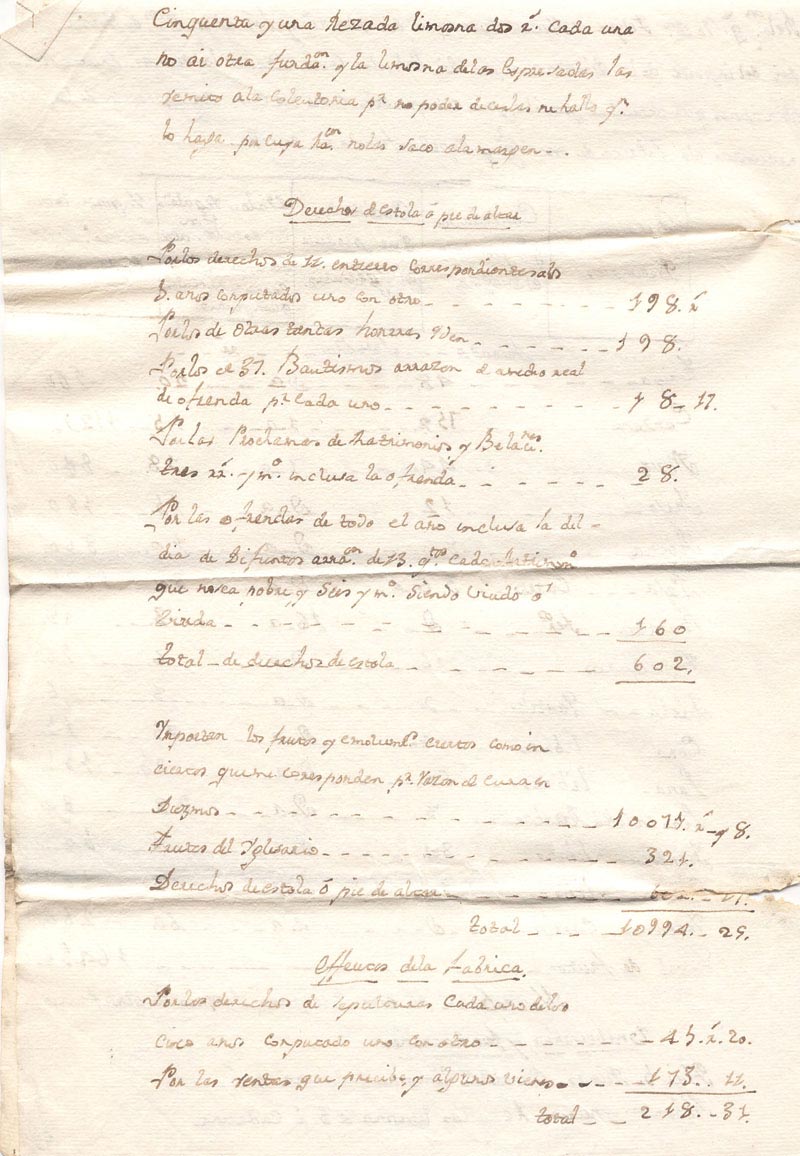 Cinquenta y una Rezada limosna dos r.ˢ Cada una
no ai otra fundaᵒⁿ. y la limosna delas Espresadas las
remito ala Colectoria pʳ. no poder decirlas ni hallo qⁿ.
lo haga por cuya Raᶜᵒⁿ. nolas saco ala margen - .
Derechos de estola ó pie de altar
Por los derechos de 11. entierro correspondientes alos
5. anos conputados uno con otro - - - - 198. rˢ
Por los de otras tantas honrras Yden - - - - 198.
Por los de 37. Bautismos arrazon de medio real
de ofrenda pʳ. Cada uno - - - - 18 - 17.
Por las Proclamas de Matrimonios y Belacⁿᵉˢ.
tres rˢ. y mº. inclusa la ofrenda - - - - 28.
Por las ofrendas de todo el año inclusa la del -
dia de Difuntos arraᵒⁿ. de 13. qᵗᵒˢ. Cada Matrimº
que no sea pobre, y Seis y mº. Siendo Viudo ó
Viuda - - - - 160
total - de derechos de estola - - - - 602.
Ynportan los frutos y emolumᵗᵒˢ ciertos como in
ciertos que me corresponden pʳ. razon de Cura en
Diezmos - - - - 10071. rˢ - y 8.
Frutos del Yglesario - - - - 321.
Derechos de estola ó pie de altar - - - - 602 - 17.
total - - - 10994 - 25.
Effectos dela Fabrica.
Por los derechos de sepulturas Cada uno delos
Cinco anos conputado uno con otro - - - - 45. rˢ. 20.
Por las rentas que precibe, y algunos vienes - - - 173. . 11.
total - - 218. - 31.